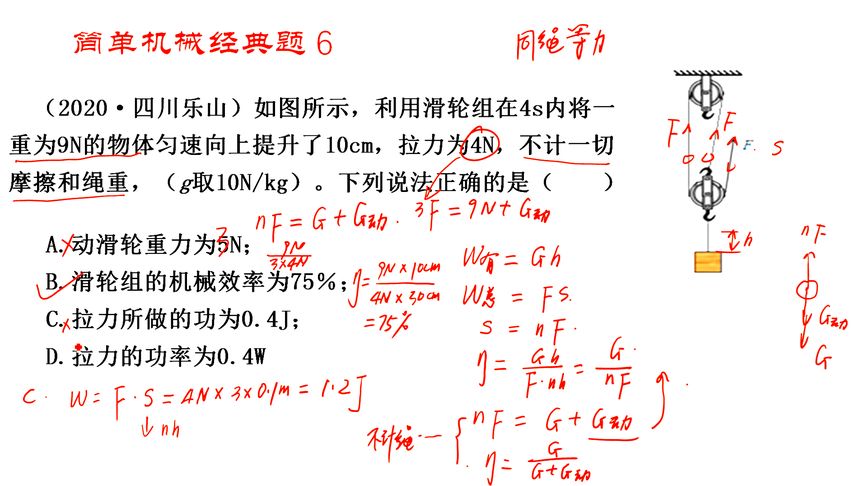 简单机械经典题6
同绳等力
（2020·四川乐山）如图所示，利用滑轮组在4s内将一
重为9N的物体匀速向上提升了10cm，拉力为4N，不计一切
摩擦和绳重，（g取10N/kg）。下列说法正确的是（　　）
F F F. S
h
nF=G+G动. 3F=9N+G动
A.×动滑轮重力为5N； 3
9N
3×4N
B.✓滑轮组的机械效率为75%；
η=9N×10cm
4N×30cm
=75%
C.×拉力所做的功为0.4J；
D.拉力的功率为0.4W
W有=Gh
W总=FS.
S=nF.
η=Gh/F·nh=G/nF
nF
G动
G
C. W=F·S=4N×3×0.1m=1.2J
↓nh
不计绳·一
nF=G+G动
η=G/G+G动